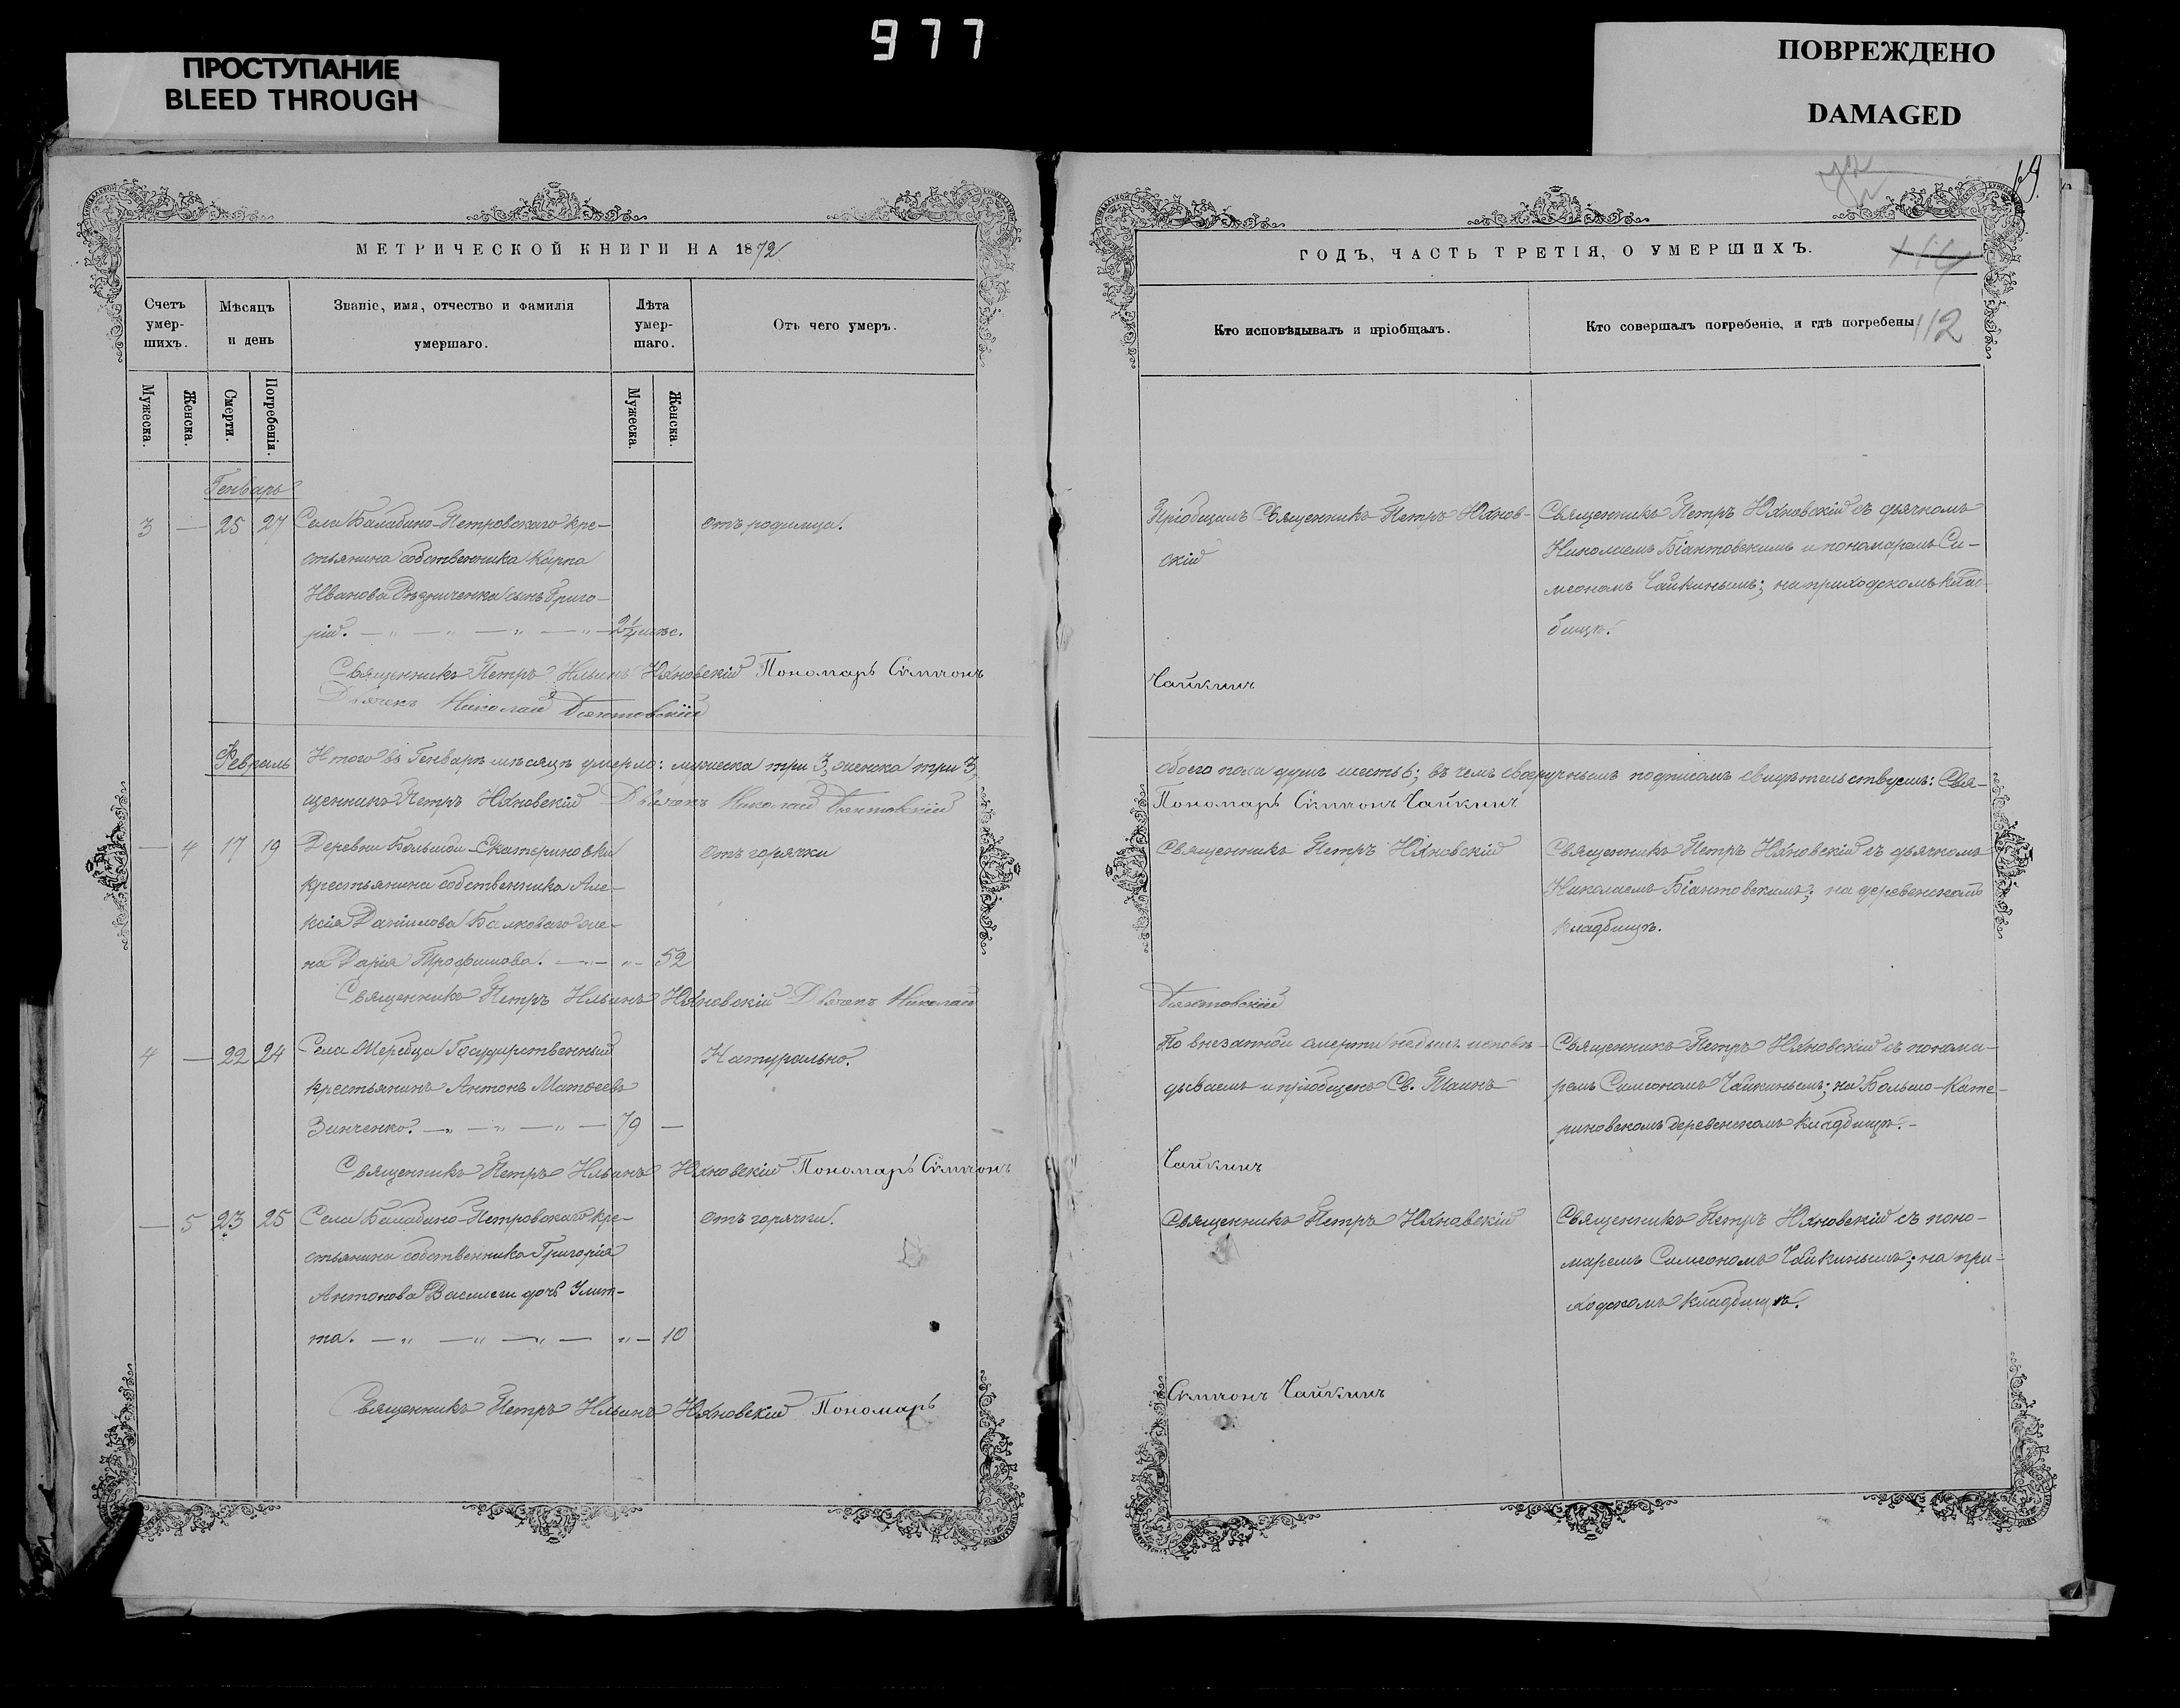 977
ПРОСТУПАНИЕ
BLEED THROUGH
ПОВРЕЖДЕНО
DAMAGED
МЕТРИЧЕСКОЙ КНИГИ НА 1872
Счетъ умер-шихъ.
Мѣсяцъ и день
Званіе, имя, отчество и фамилія умершаго.
Лѣта умер-шаго.
Отъ чего умеръ.
Мужеска.
Женска.
Смерти.
Погребенія.
Мужеска.
Женска.
Генварь
3 — 25 27 Села Балабино-Петровскаго кре-
стьянина собственника Карпа
Иванова Рѣзниченка сынъ Григо-
рій. 2½ мѣс.
отъ родимца.
Священникъ Петръ Ильинъ Пономарь Симеонъ
Дьячекъ Николай
Февраль
Итого въ Генварѣ мѣсяцѣ умерло: мужеска три 3, женска три 3,
щенникъ Петръ Дьячекъ Николай
— 4 17 19 Деревни Большой-Екатериновки
крестьянина собственника Але-
ксія Даніилова Балковаго же-
на Дарія Трофимова. 52
отъ горячки
Священникъ Петръ Ильинъ Дьячекъ Николай
4 — 22 24 Села Жеребца Государственный
крестьянинъ Антонъ Матѳеевъ
Зинченко. 79 —
Натурально.
Священникъ Петръ Ильинъ Пономарь Симеонъ
— 5 23 25 Села Балабино-Петровскаго кре-
стьянина собственника Григорія
Антонова дочь Улит-
та. 10
отъ горячки.
Священникъ Петръ Ильинъ Пономарь
ГОДЪ, ЧАСТЬ ТРЕТІЯ, О УМЕРШИХЪ.
112
Кто исповѣдывалъ и пріобщалъ.
Кто совершалъ погребеніе, и гдѣ погребены
Пріобщалъ Священникъ Петръ
скій
Священникъ Петръ съ дьячкомъ
Николаемъ Біантовскимъ и пономаремъ Си-
меономъ Чайкинымъ; на приходскомъ клад-
бищѣ.
Чайкинъ
обоего пола душъ шесть 6; въ чемъ своеручнымъ подписомъ свидѣтельствуемъ: Свя-
Пономарь Симеонъ Чайкинъ
Священникъ Петръ
Священникъ Петръ съ дьячкомъ
Николаемъ Біантовскимъ; на деревенскомъ
кладбищѣ.
По внезапной смерти небылъ исповѣ-
дываемъ и пріобщенъ Св. Таинъ
Священникъ Петръ съ понома-
ремъ Симеономъ Чайкинымъ; на Больше-Кате-
риновскомъ деревенскомъ кладбищѣ.
Чайкинъ
Священникъ Петръ
Священникъ Петръ съ поно-
маремъ Симеономъ Чайкинымъ; на при-
ходскомъ кладбищѣ.
Симеонъ Чайкинъ